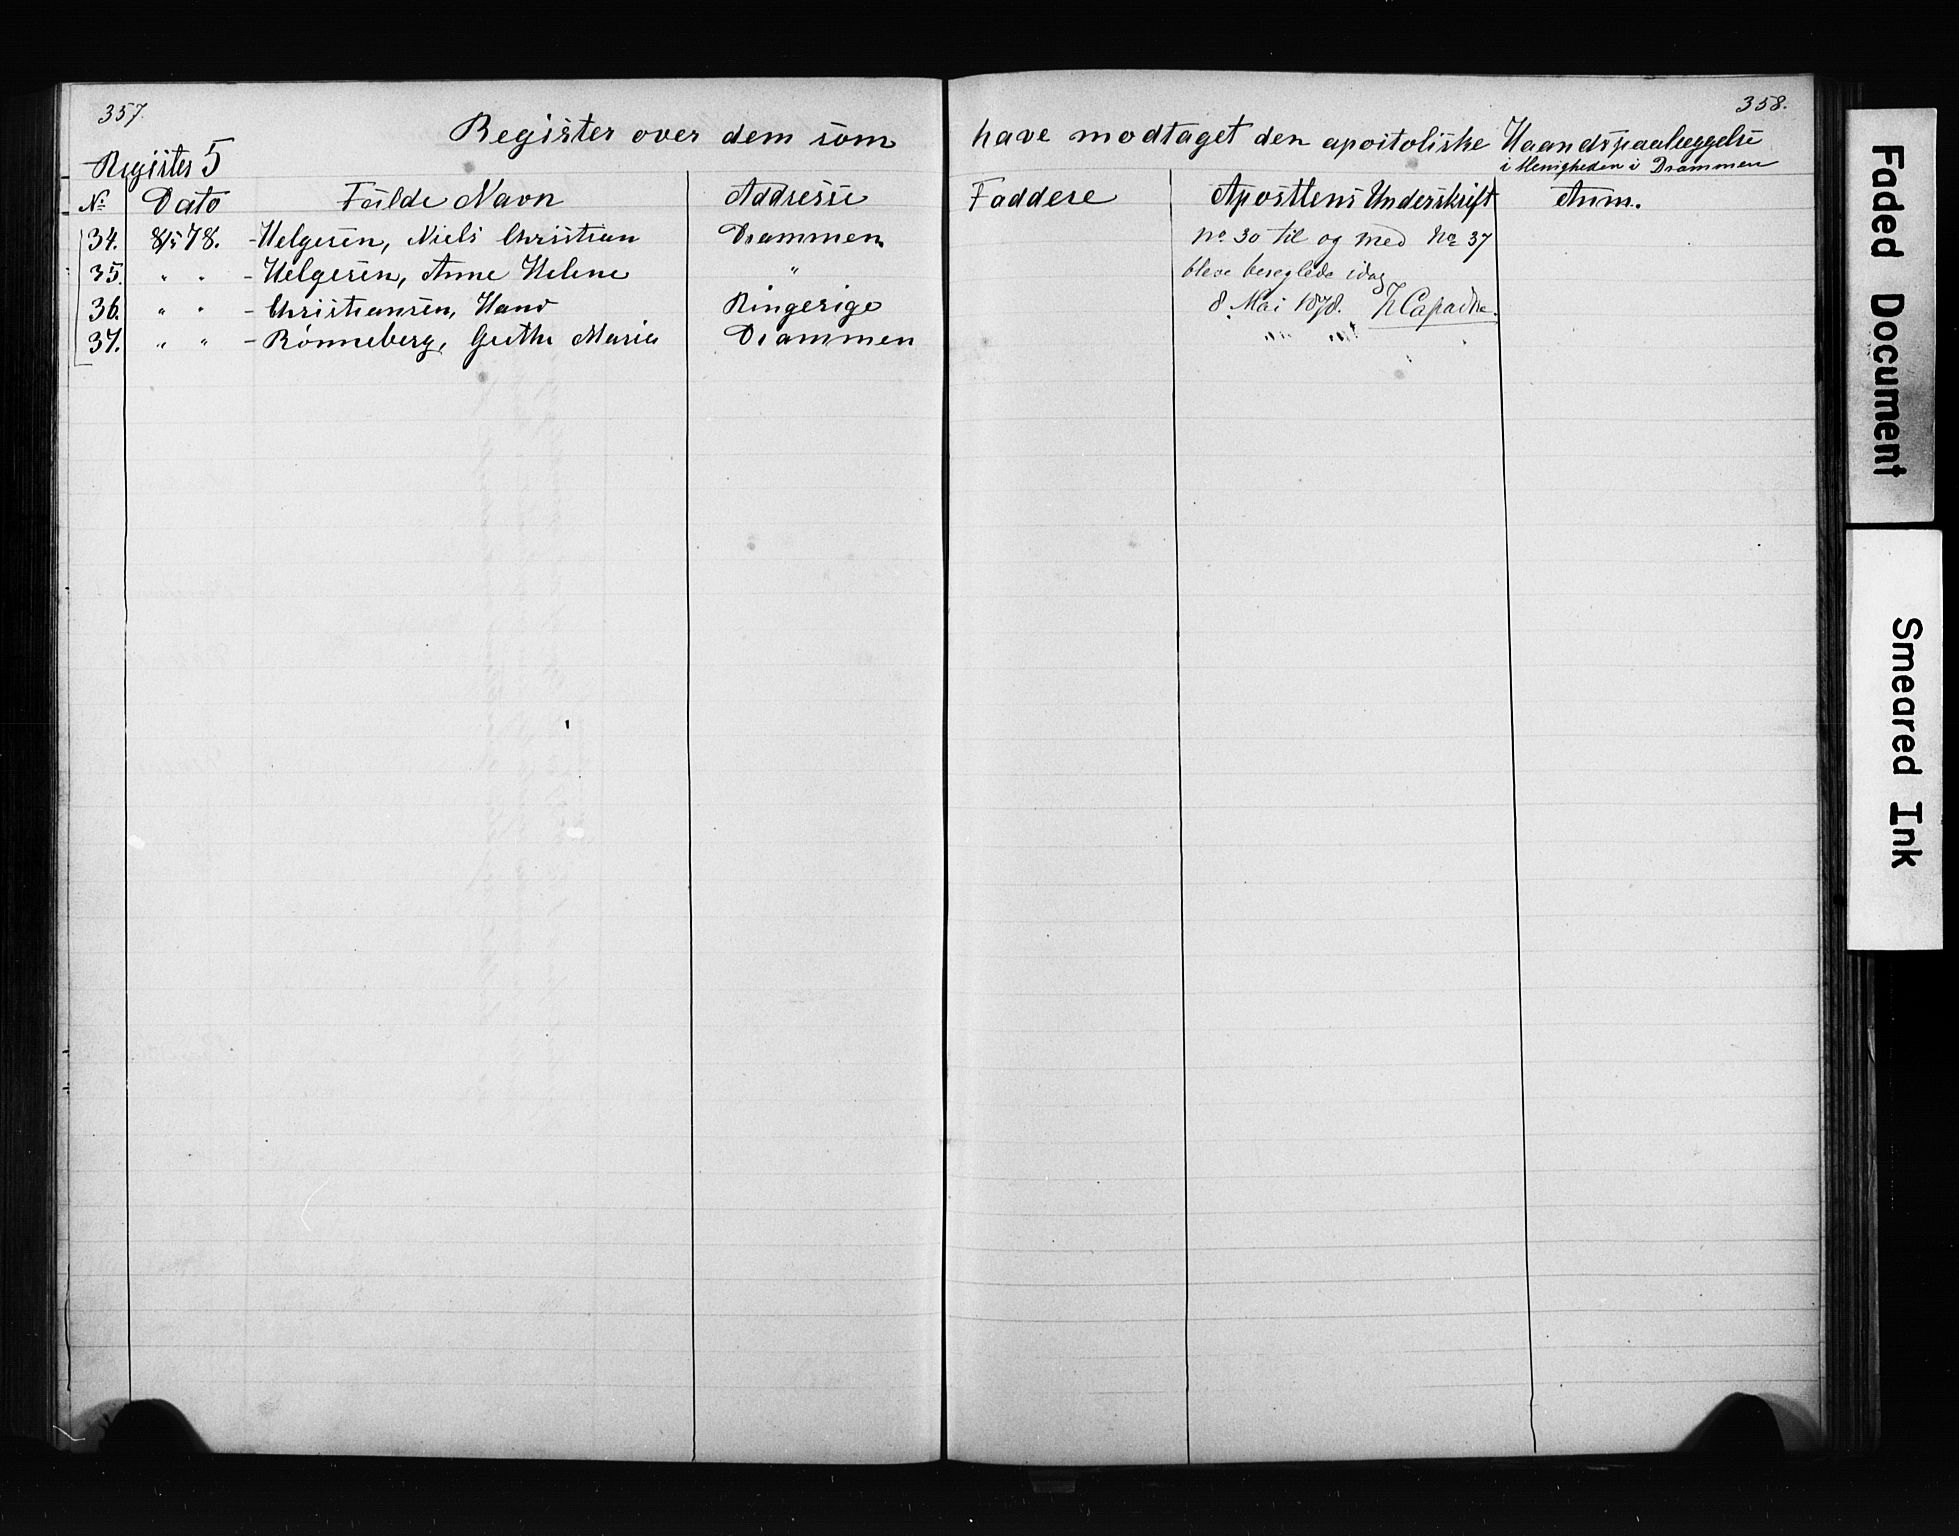 357.
358.
Register over dem som have modtaget den apostoliske Haandspaalæggelse
i Menigheden i Drammen
Register 5
No Dato Fulde Navn Addresse Faddere Apostlens Underskrift Anm.
34. 8/5 78. - Helgesen, Niels Christian Drammen No 30 til og med No 37
35. " " - Helgesen, Anne Helene " bleve beseglede idag
36. " " - Christiansen, Hans Ringerige 8. Mai 1878. Capadose.
37. " " - Rønneberg, Grethe Maria Drammen
Faded Document
Smeared Ink